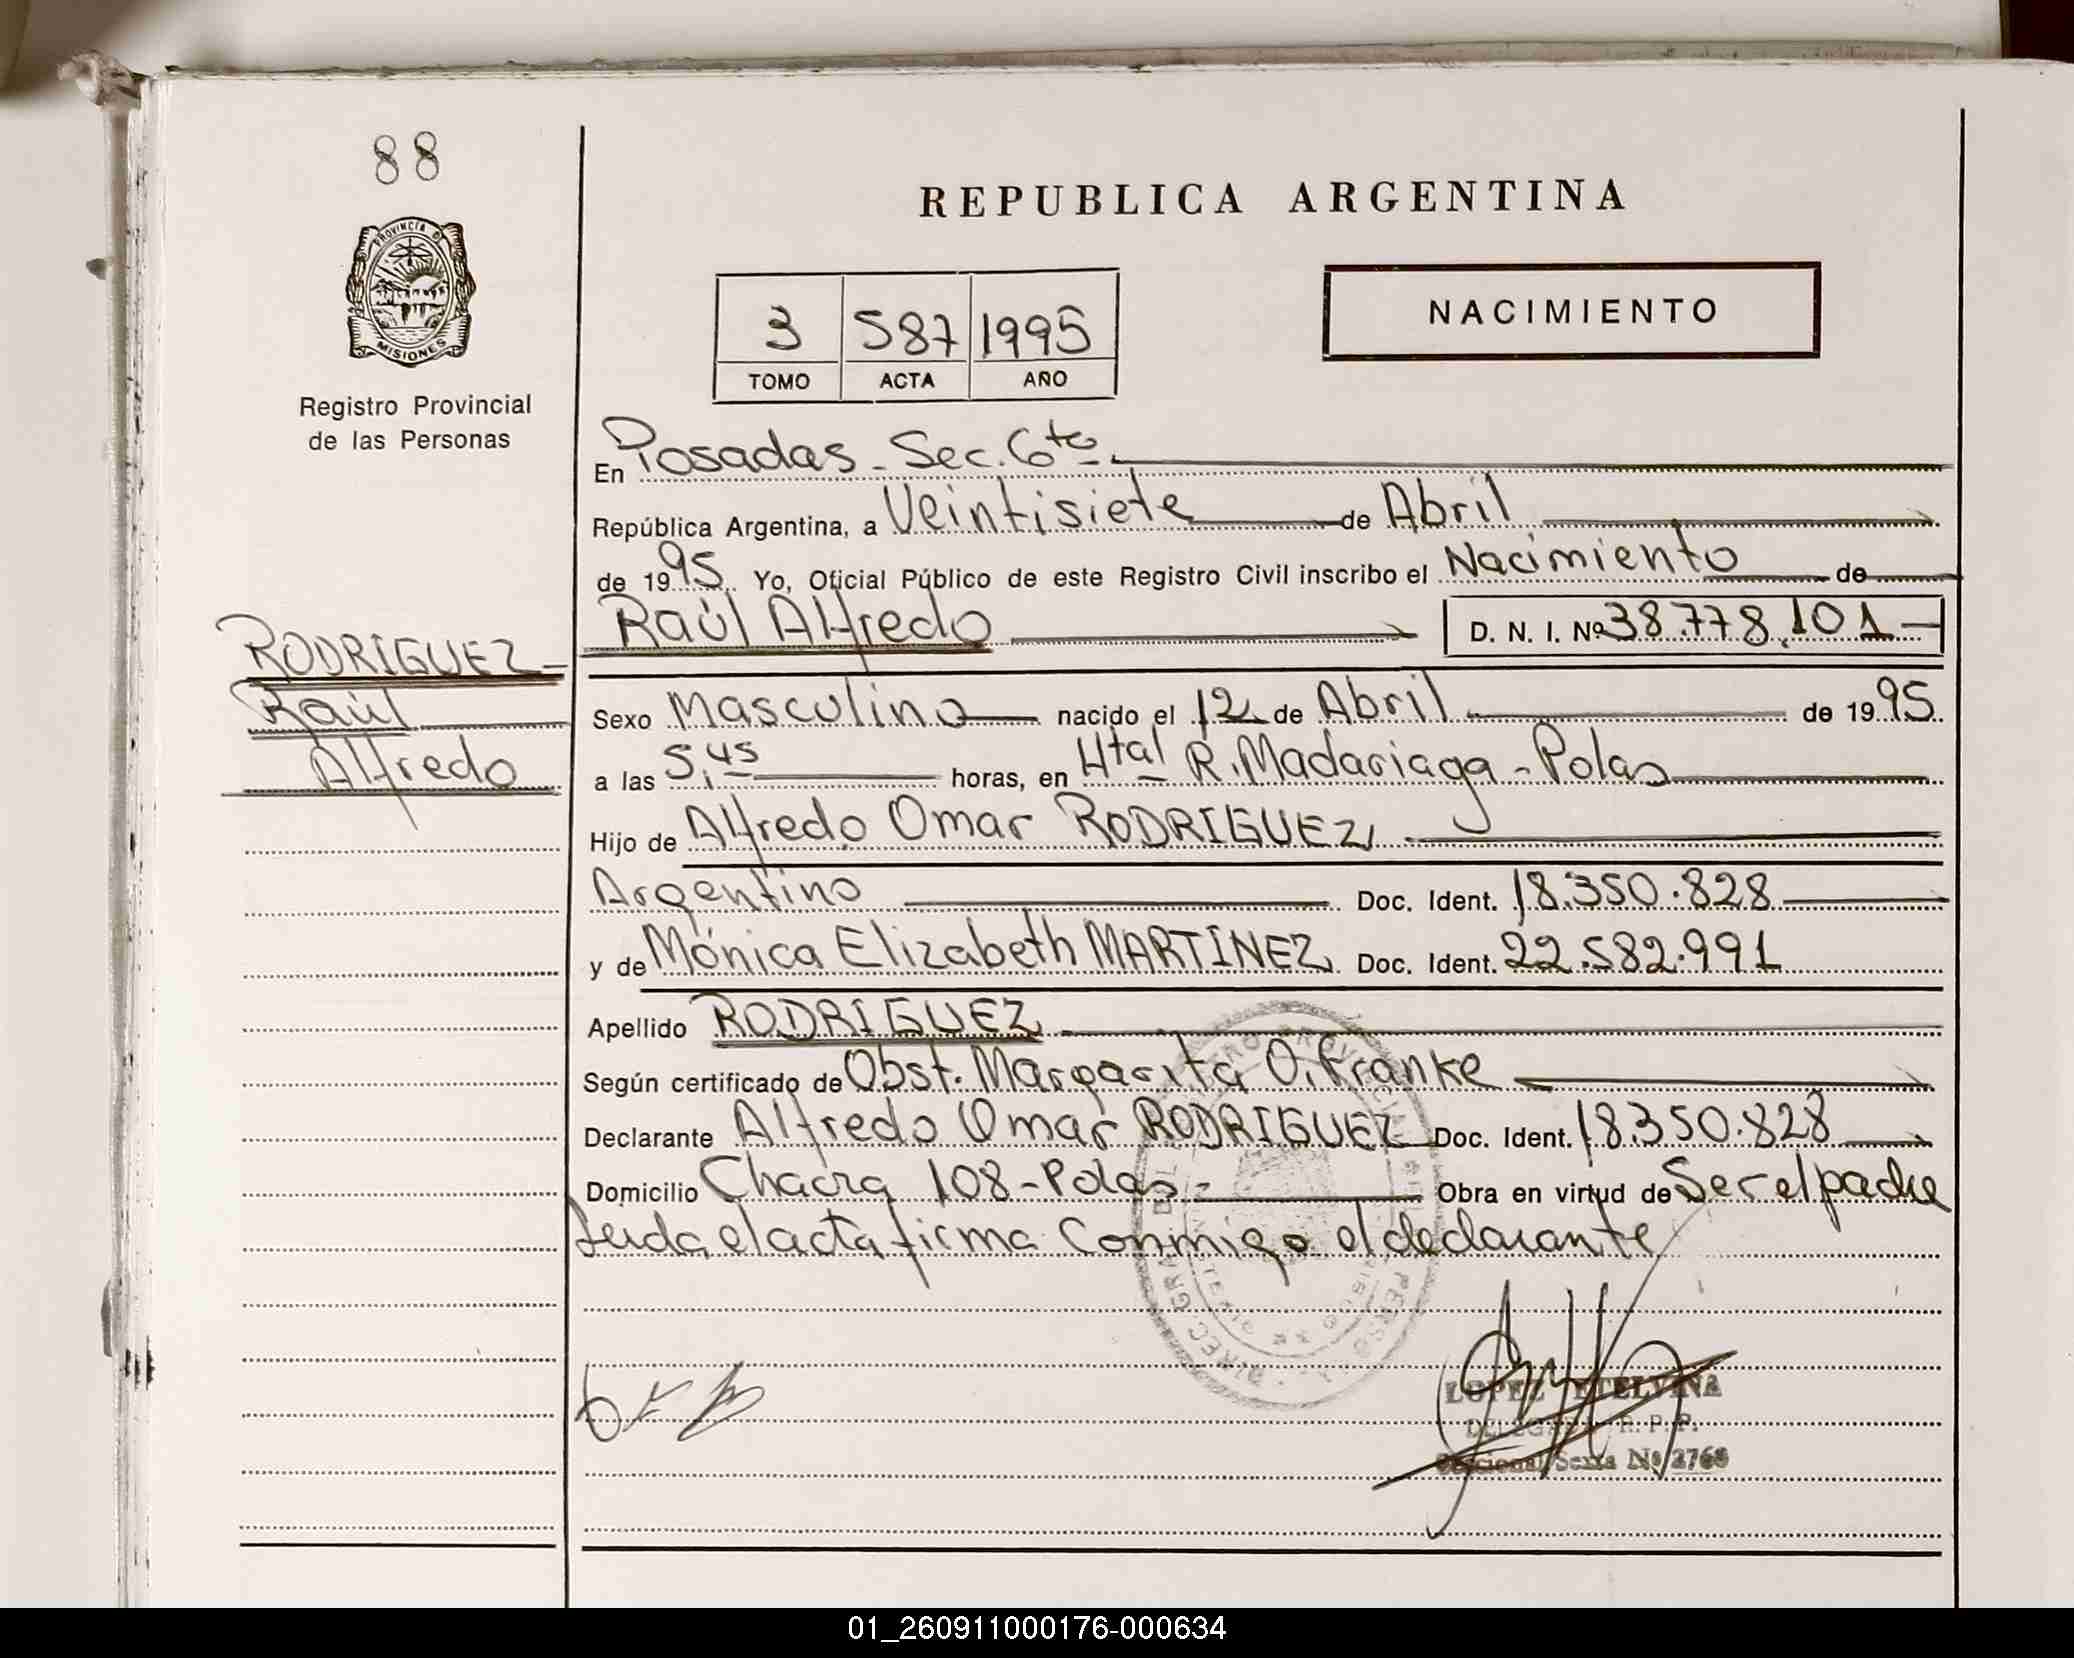 88
REPUBLICA ARGENTINA
PROVINCIA DE
MISIONES
Registro Provincial
de las Personas
NACIMIENTO
3 587 1995
TOMO ACTA AÑO
En Posadas - Sec. 6ta
República Argentina, a Veintisiete de Abril
de 1995 Yo, Oficial Público de este Registro Civil inscribo el Nacimiento de
Raúl Alfredo D. N. I. Nº 38.778.101-
RODRIGUEZ-
Raúl
Alfredo
Sexo Masculino nacido el 12 de Abril de 1995
a las 5,45 horas, en Htal R. Madariaga - Pdas
Hijo de Alfredo Omar RODRIGUEZ
Argentino Doc. Ident. 18.350.828
y de Mónica Elizabeth MARTINEZ Doc. Ident. 22.582.991
Apellido RODRIGUEZ
Según certificado de Obst. Margarita O. Franke
Declarante Alfredo Omar RODRIGUEZ Doc. Ident. 18.350.828
Domicilio Chacra 108-Pdas- Obra en virtud de Ser el padre
Leida el acta firma Conmigo el declarante
LOPEZ ETELVINA
DELEGADA R. P. P.
Seccional Sexta Nº 2768
01_260911000176-000634